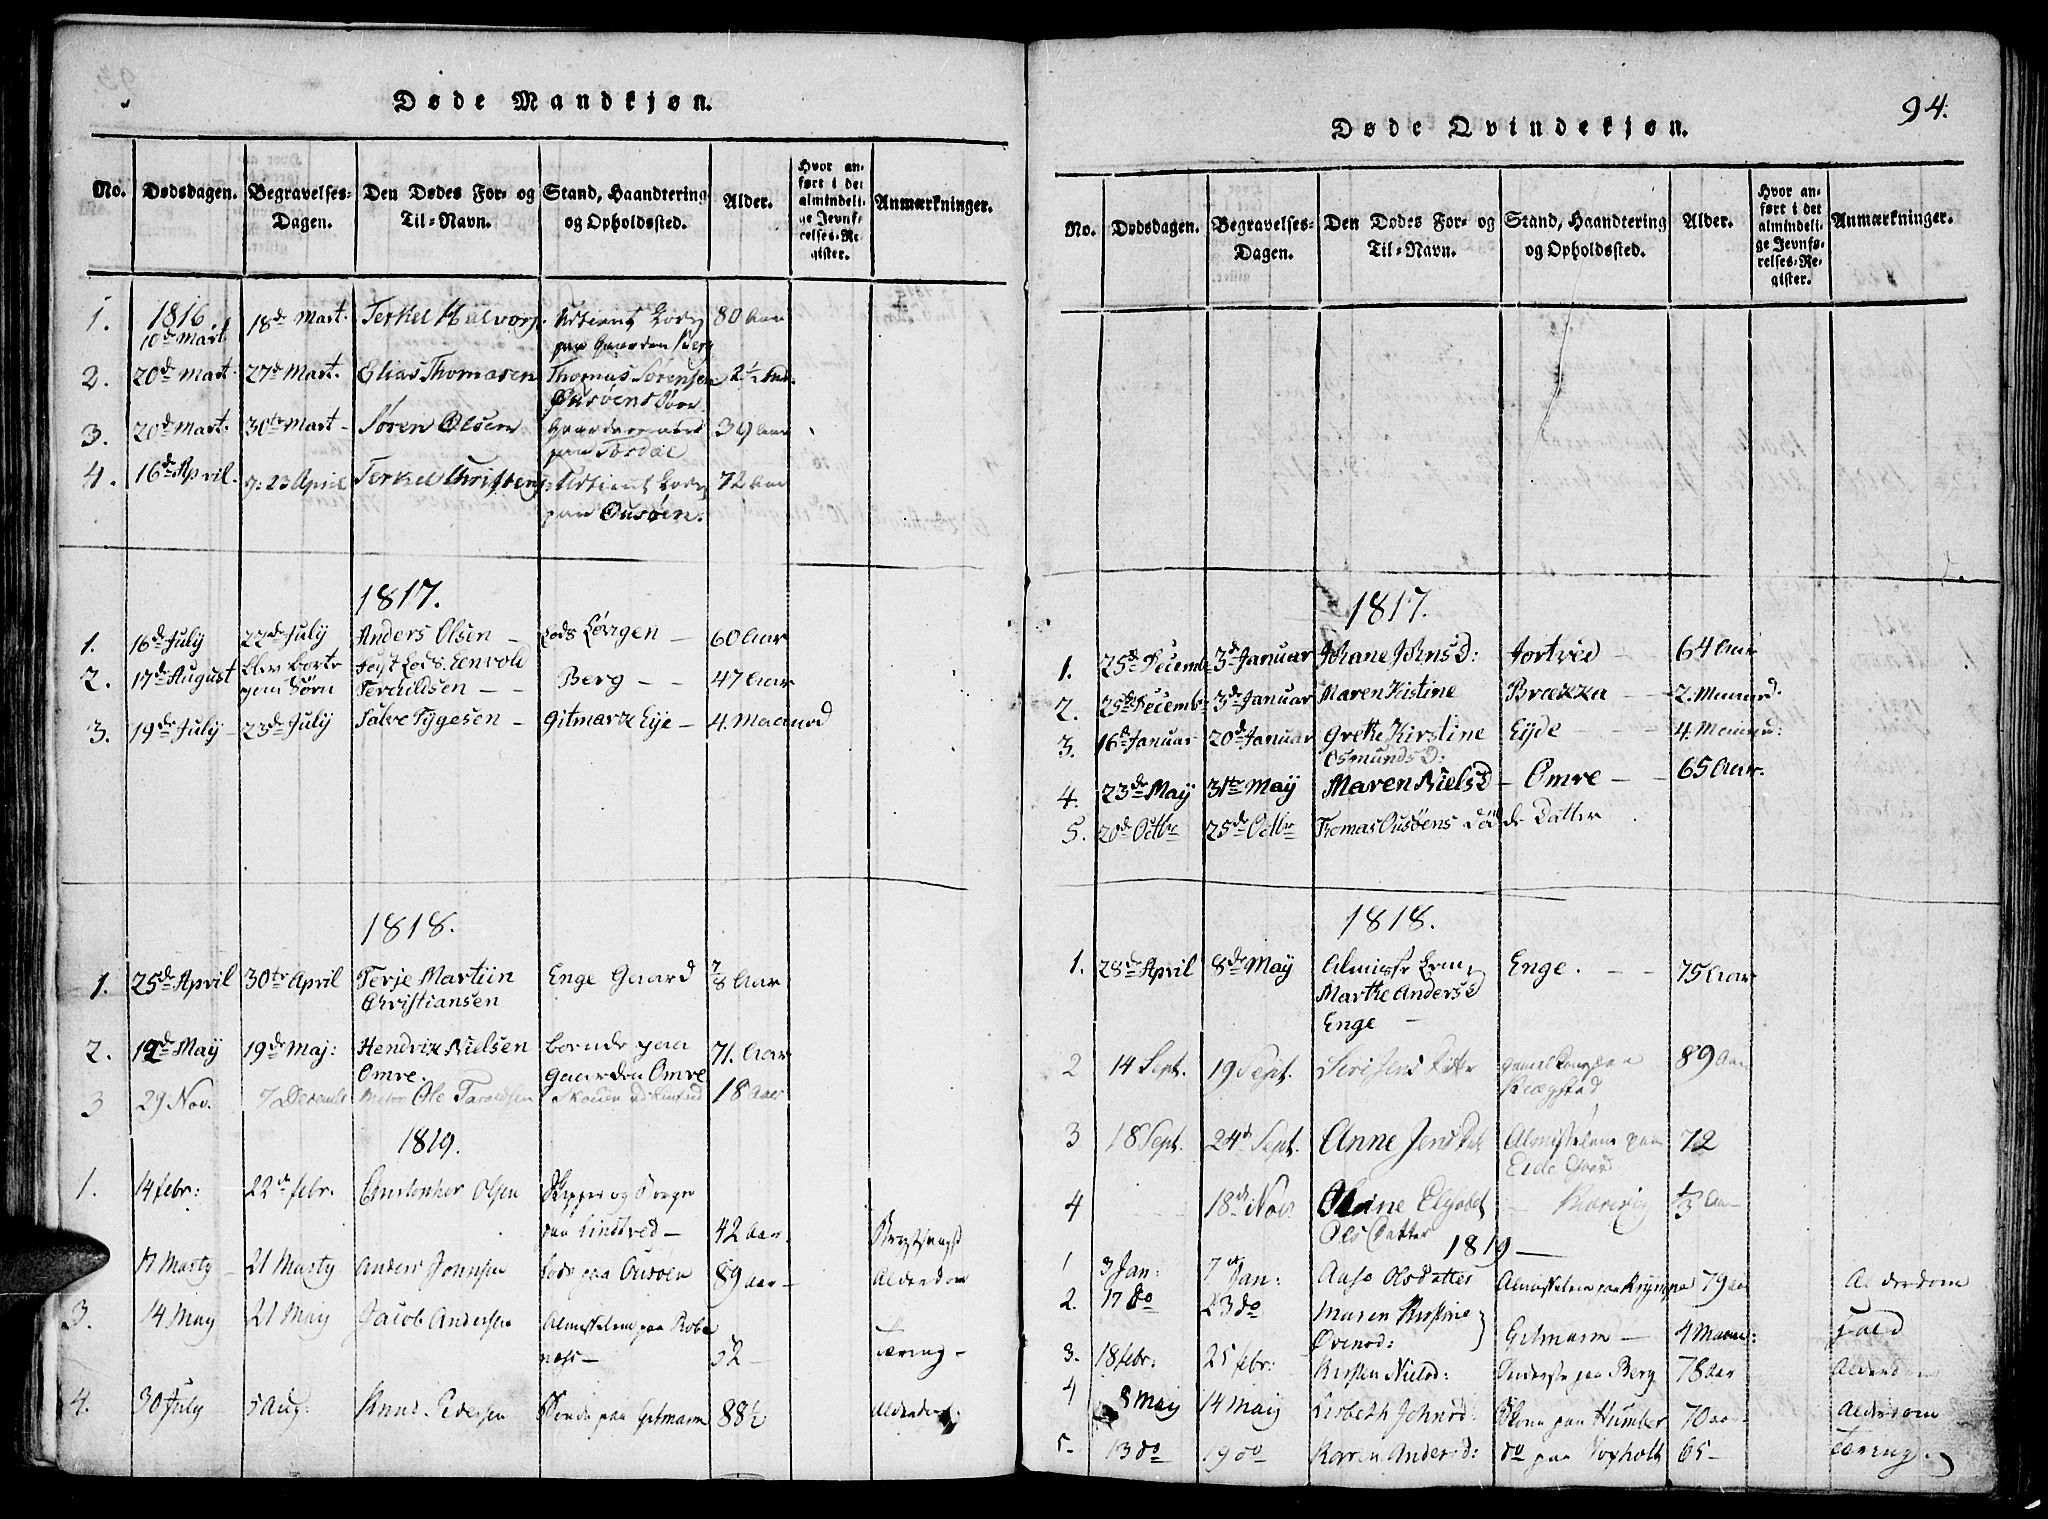 Døde Mandkjøn.
No. Dødsdagen. Begravelses-Dagen. Den Dødes For- og Til-Navn. Stand, Haandtering og Opholdssted. Alder. Hvor anført i det almindelige Jevnførelses-Register. Anmærkninger.
1. 1816 10de Mart. 18de Mart. Terkel Halvors. paa Gaarden Berg 80 Aar
2. 20de Mart. 27de Mart. Elias Thomasen Thomas Sørensen Ousøens Søn. 2½
3. 20de Mart. 30te Mart Søren Olsen paa Tordal 39 Aar
4. 16de April. 23 April Terkel Christens. paa Ousøen. 72 Aar
1817.
1. 16de July 22de July Anders Olsen Lods 60 Aar
2. 17de August Terchildsen Berg 47 Aar
3. 19de July 23de July Salve Tygesen Gitmark Eye 4. Maaned
1818.
1. 25de April 30te April Terje Martiin Christiansen Enge Gaard 8 Aar
2. 12de May 19de Maj: Hendrik Nielsen Omre. Boende paa Gaarden Omre 71. Aar
3 29 Nov. 7 Decemb Ole Taraldsen 18 Aar
1819.
1. 14 febr: 22de febr. Christopher Olsen Skipper og paa Lindtved 42 Aar.
17 Marty 21 Marty Anders Johnsen Lods paa Ousøen 89 Aar Alderdom
3. 14 May 21 May Jacob Andersen Almisselem paa 52 Tæring
4. 30 July 5 Aug: Knud Pedersen Bonde paa Getmarn 88½ Alderdom
94.
Døde Qvindekjøn.
No. Dødsdagen. Begravelses-Dagen. Den Dødes For- og Til-Navn. Stand, Haandtering og Opholdssted. Alder. Hvor anført i det almindelige Jevnførelses-Register. Anmærkninger.
1817.
1. 25de Decembr 3de Januar Johane Johnsd: Tortved 64 Aar
2. 25de Decembr 3de Januar Maren Kistine Brække 2. Maaned.
3. 16de Januar 20de Januar Grethe Kirstine Osmundsd: Eyde 4. Maaned:
4. 23de May 31te May Maren Nielsd Omre 65 Aar.
5. 20de Octbr 25de Octbr Thomas Ousøens død. Datter
1818.
1. 28de April 8de May Almisse Lem Marthe Andersd Enge Enge. 75 Aar
2 14 Sept. 19 Sept. Siri Jens Datter 89 Aar
3 18 Sept. 24d Sept. Anne Jens Dat Almisselem paa Eide Gaard 72
4 18de Nov Olsdatter ⅓ Aar
1819
1 3 Jan: 7de Jan: Aase Olsdatter Almisselem paa 79 Aar Alderdom
2. 17 do 23 do Maren Kirstine Øvensd: Getmarn 4 Maan:
3. 18 febr: 25 febr: Kirsten Nielsd: paa Berg 78 Aar Alderdom
4 8 May 14 May Lisbeth Johnsd: Kone paa Humber 70 Aar Alderdom
5. 13 do 19 do Karen Andersd: do paa Voxholt 65 Tæring.